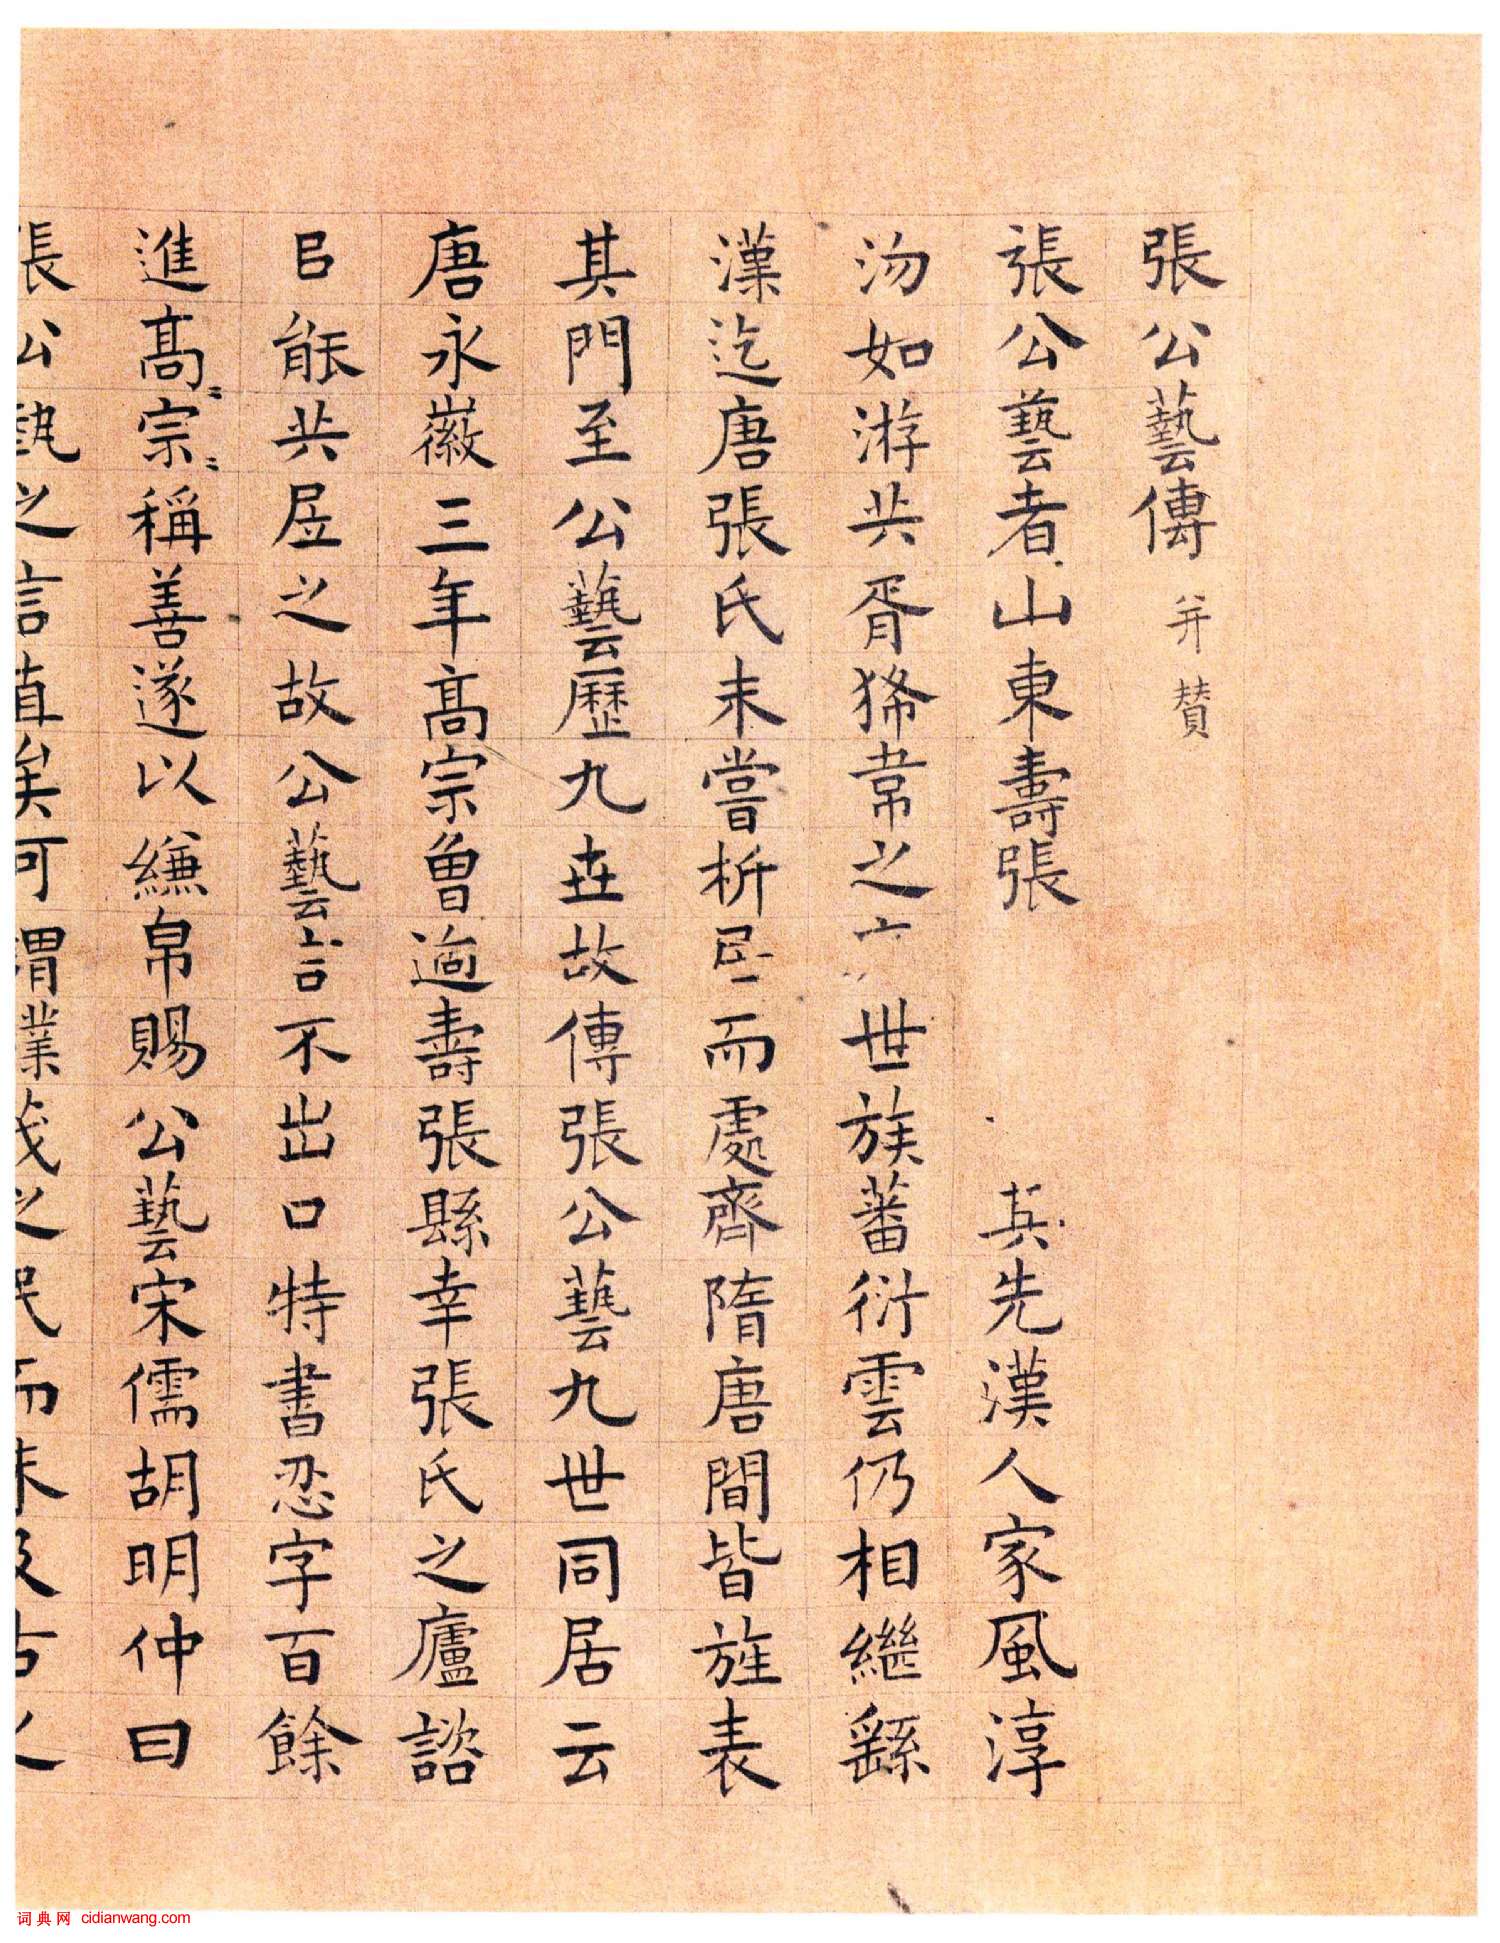 張公藝傳 并贊
張公藝者山東壽張 其先漢人家風淳
沕如游共胥狶韋之 世族蕃衍雲仍相繼繇
漢迄唐張氏未嘗析 而處齊隋唐間皆旌表
其門至公藝歷九世故傳張公藝九世同居云
唐永徽三年高宗魯過壽張縣幸張氏之廬諮
㠯能共居之故公藝言不出口特書忍字百餘
進高〻宗〻稱善遂以縑帛賜公藝宋儒胡明仲曰
張公藝之信直矣可謂業茂之民而未及古人
词典网 cidianwang.com